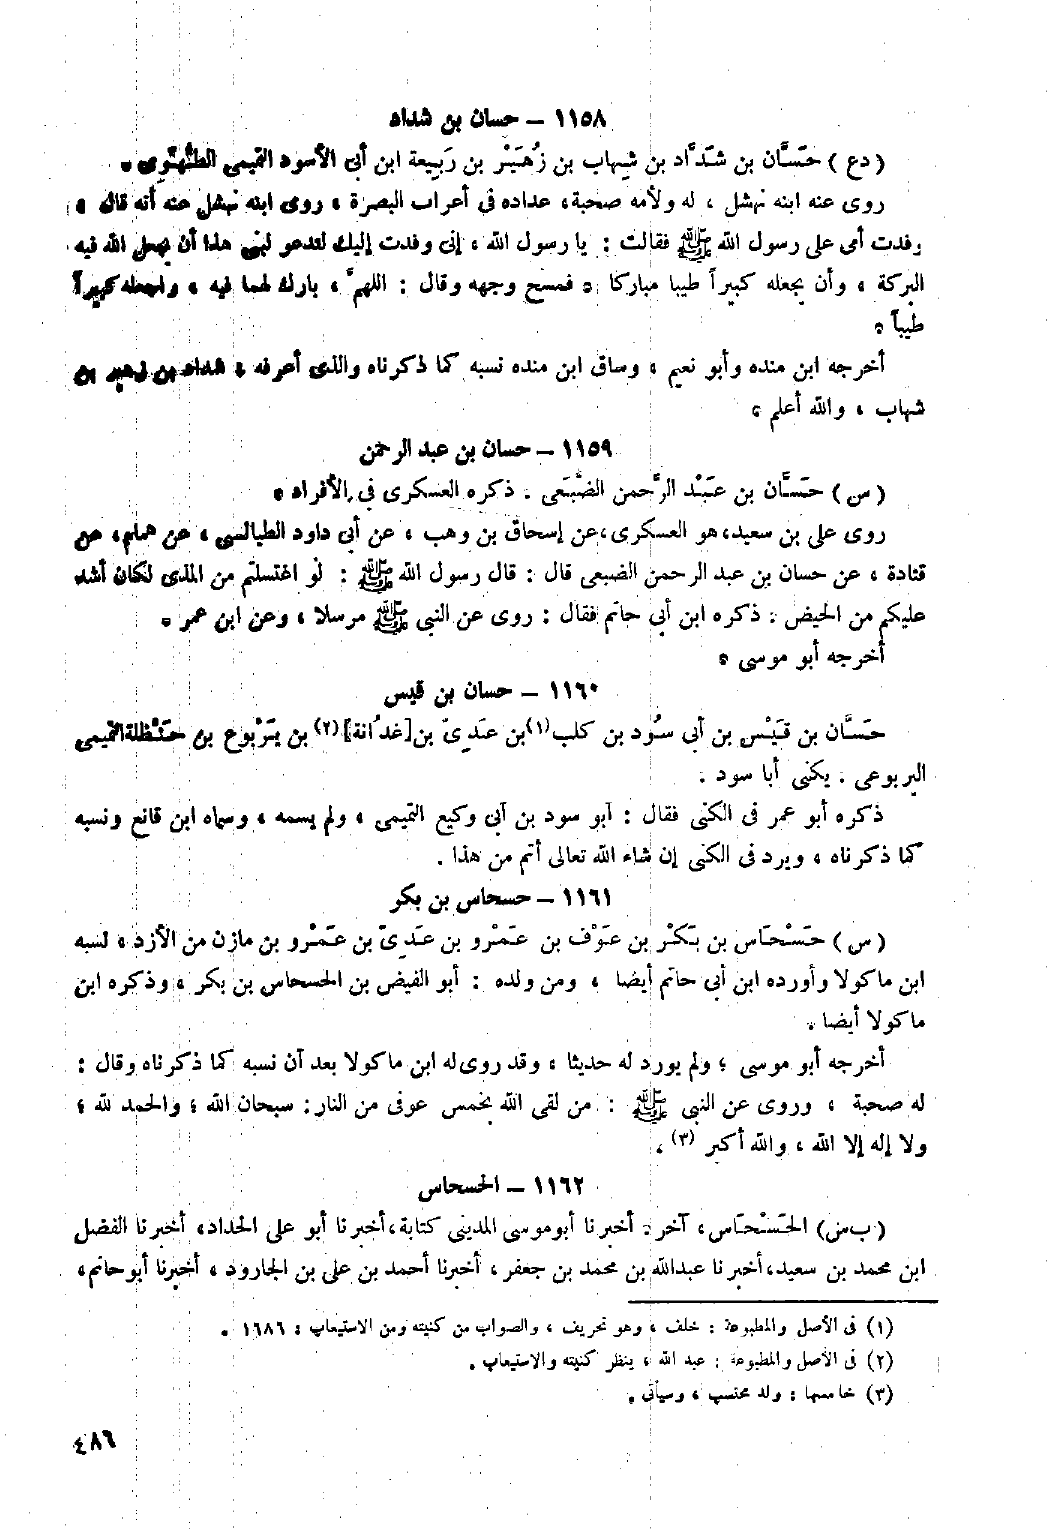 ١١٥٨ – حسان بن شداد
(دع) حَسَّان بن شَدَّاد بن شِهاب بن زُهَيْر بن رَبِيعة ابن أبى الأسود التميمى الطُّهَوِى .
روى عنه ابنه نهشل ، له ولأمه صحبة، عداده فى أعراب البصرة ، روى ابنه نهشل عنه أنه قال :
وفدت أمى على رسول الله ﷺ فقالت : يا رسول الله ، إنى وفدت إليك لتدعو لبنى هذا أن يجعل الله فيه
البركة ، وأن يجعله كبيراً طيبا مباركا . فمسح وجهه وقال : اللهمَّ ، بارك لهما فيه ، واجعله كبيراً
طيباً .
أخرجه ابن منده وأبو نعيم ، وساق ابن منده نسبه كما ذكرناه والذى أعرفه ، شداد بن زهير بن
شهاب ، والله أعلم .
١١٥٩ – حسان بن عبد الرحمن
(س) حَسَّان بن عَبْد الرَّحمن الضُّبَعى . ذكره العسكرى فى الأفراد .
روى على بن سعيد، هو العسكرى، عن إسحاق بن وهب ، عن أبى داود الطيالسى ، عن همام، عن
قتادة ، عن حسان بن عبد الرحمن الضبعى قال : قال رسول الله ﷺ : لو اغتسلتم من المذى لكان أشد
عليكم من الحيض . ذكره ابن أبى حاتم فقال : روى عن النبى ﷺ مرسلا ، وعن ابن عمر .
أخرجه أبو موسى .
١١٦٠ – حسان بن قيس
حَسَّان بن قَيْس بن أبى سُود بن كلب(١)بن عَدِىّ بن[غدُانة](٢) بن يَرْبوع بن حَنْظلة التميمى
اليربوعى . يكنى أبا سود .
ذكره أبو عمر فى الكنى فقال : أبو سود بن أبى وكيع التميمى ، ولم يسمه ، وسماه ابن قانع ونسبه
كما ذكرناه ، ويرد فى الكنى إن شاء الله تعالى أتم من هذا .
١١٦١ – حسحاس بن بكر
(س) حَسْحَاس بن بَكْر بن عَوْف بن عَمْرو بن عَدِىّ بن عَمْرو بن مازن من الأزد ، نسبه
ابن ماكولا وأورده ابن أبى حاتم أيضا ، ومن ولده : أبو الفيض بن الحسحاس بن بكر ، وذكره ابن
ماكولا أيضا .
أخرجه أبو موسى ؛ ولم يورد له حديثا ، وقد روى له ابن ماكولا بعد أن نسبه كما ذكرناه وقال :
له صحبة ، وروى عن النبى ﷺ : من لقى الله بخمس عوفى من النار: سبحان الله ؛ والحمد لله ؛
ولا إله إلا الله ، والله أكبر (٣) .
١١٦٢ – الحسحاس
(ب س) الحَسْحَاس، آخر . أخبرنا أبو موسى المدينى كتابة، أخبرنا أبو على الحداد، أخبرنا الفضل
ابن محمد بن سعيد، أخبرنا عبدالله بن محمد بن جعفر ، أخبرنا أحمد بن على بن الجارود ، أخبرنا أبو حاتم،
(١) فى الأصل والمطبوعة : خلف ، وهو تحريف ، والصواب من كنيته ومن الاستيعاب : ١٦٨٦ .
(٢) فى الأصل والمطبوعة : عبد الله ، ينظر كنيته والاستيعاب .
(٣) خامسها : ولد محتسب ، وسيأتى .
٤٨٦